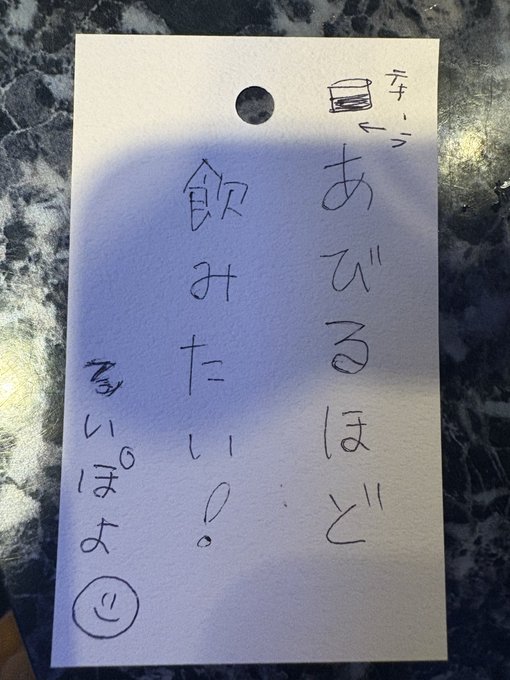 テキーラ
あびるほど
飲みたい!
るいぽよ